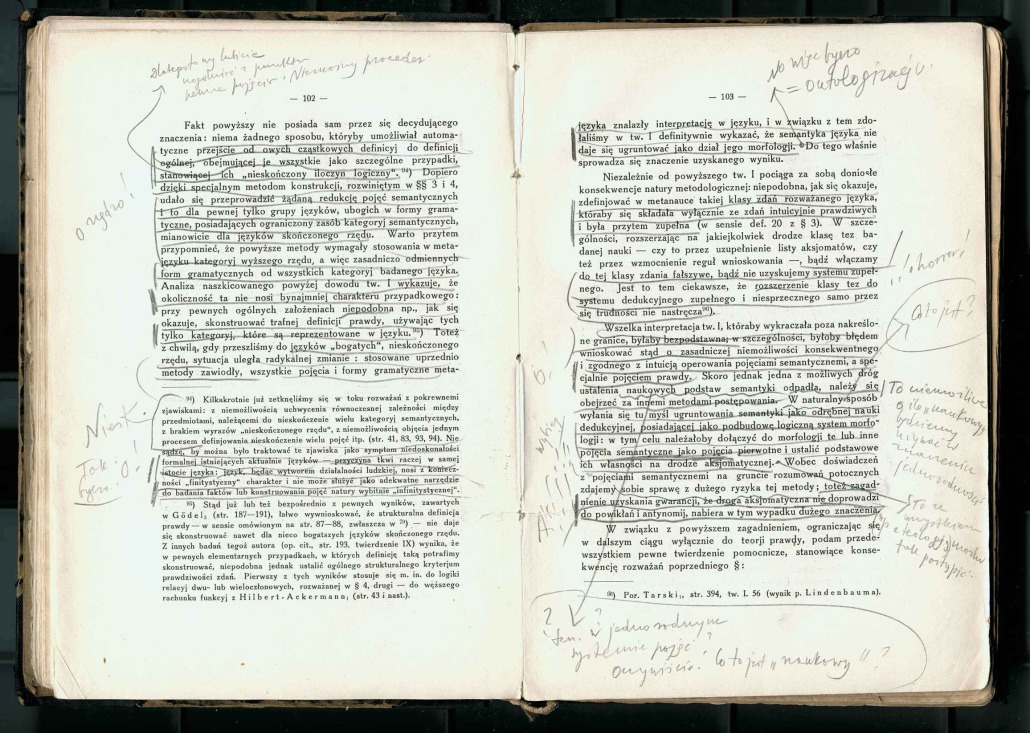 Dlatego to my lubicie
— 102 —
Fakt powyższy nie posiada sam przez się decydującego
znaczenia: niema żadnego sposobu, któryby umożliwiał automa-
tyczne przejście od owych cząstkowych definicyj do definicji
ogólnej, obejmującej je wszystkie jako szczególne przypadki,
stanowiącej ich „nieskończony iloczyn logiczny". ⁹⁴) Dopiero
dzięki specjalnym metodom konstrukcji, rozwiniętym w §§ 3 i 4,
udało się przeprowadzić żądaną redukcję pojęć semantycznych
i to dla pewnej tylko grupy języków, ubogich w formy grama-
tyczne, posiadających ograniczony zasób kategoryj semantycznych,
mianowicie dla języków skończonego rzędu. Warto przytem
przypomnieć, że powyższe metody wymagały stosowania w meta-
języku kategoryj wyższego rzędu, a więc zasadniczo odmiennych
form gramatycznych od wszystkich kategoryj badanego języka.
Analiza naszkicowanego powyżej dowodu tw. I wykazuje, że
okoliczność ta nie nosi bynajmniej charakteru przypadkowego:
przy pewnych ogólnych założeniach niepodobna np., jak się
okazuje, skonstruować trafnej definicji prawdy, używając tych
tylko kategoryj, które są reprezentowane w języku.⁹⁵) Toteż
z chwilą, gdy przeszliśmy do języków „bogatych", nieskończonego
rzędu, sytuacja uległa radykalnej zmianie: stosowane uprzednio
metody zawiodły, wszystkie pojęcia i formy gramatyczne meta-
⁹⁴) Kilkakrotnie już zetknęliśmy się w toku rozważań z pokrewnemi
zjawiskami: z niemożliwością uchwycenia równoczesnej zależności między
przedmiotami, należącemi do nieskończenie wielu kategoryj semantycznych,
z brakiem wyrazów „nieskończonego rzędu", z niemożliwością objęcia jednym
procesem definjowania nieskończenie wielu pojęć itp. (str. 41, 83, 93, 94). Nie
sądzę, by można było traktować te zjawiska jako symptom niedoskonałości
formalnej istniejących aktualnie języków — przyczyna tkwi raczej w samej
istocie języka: język, będąc wytworem działalności ludzkiej, nosi z koniecz-
ności „finitystyczny" charakter i nie może służyć jako adekwatne narzędzie
do badania faktów lub konstruowania pojęć natury wybitnie „infinitystycznej".
⁹⁵) Stąd już lub też bezpośrednio z pewnych wyników, zawartych
w Gödel₂ (str. 187—191), łatwo wywnioskować, że strukturalna definicja
prawdy — w sensie omówionym na str. 87—88, zwłaszcza w ⁷⁹) — nie daje
się skonstruować nawet dla nieco bogatszych języków skończonego rzędu.
Z innych badań tegoż autora (op. cit., str. 193. twierdzenie IX) wynika, że
w pewnych elementarnych przypadkach, w których definicję taką potrafimy
skonstruować, niepodobna jednak ustalić ogólnego strukturalnego kryterjum
prawdziwości zdań. Pierwszy z tych wyników stosuje się m. in. do logiki
relacyj dwu- lub wieloczłonowych, rozważanej w § 4, drugi — do węższego
rachunku funkcyj z Hilbert-Ackermann₁ (str. 43 i nast.).
= ontologizacji.
— 103 —
języka znalazły interpretację w języku, i w związku z tem zdo-
łaliśmy w tw. I definitywnie wykazać, że semantyka języka nie
daje się ugruntować jako dział jego morfologji. Do tego właśnie
sprowadza się znaczenie uzyskanego wyniku.
Niezależnie od powyższego tw. I pociąga za sobą doniosłe
konsekwencje natury metodologicznej: niepodobna, jak się okazuje,
zdefinjować w metanauce takiej klasy zdań rozważanego języka,
któraby się składała wyłącznie ze zdań intuicyjnie prawdziwych
i była przytem zupełna (w sensie def. 20 z § 3). W szcze-
gólności, rozszerzając na jakiejkolwiek drodze klasę tez ba-
danej nauki — czy to przez uzupełnienie listy aksjomatów, czy
też przez wzmocnienie reguł wnioskowania —, bądź włączamy
do tej klasy zdania fałszywe, bądź nie uzyskujemy systemu zupeł-
nego. Jest to tem ciekawsze, że rozszerzenie klasy tez do
systemu dedukcyjnego zupełnego i niesprzecznego samo przez
się trudności nie nastręcza⁹⁶).
Wszelka interpretacja tw. I, któraby wykraczała poza nakreślo-
ne granice, byłaby bezpodstawna; w szczególności, byłoby błędem
wnioskować stąd o zasadniczej niemożliwości konsekwentnego
i zgodnego z intuicją operowania pojęciami semantycznemi, a spe-
cjalnie pojęciem prawdy. Skoro jednak jedna z możliwych dróg
ustalenia naukowych podstaw semantyki odpadła, należy się
obejrzeć za innemi metodami postępowania. W naturalny sposób
wyłania się tu myśl ugruntowania semantyki jako odrębnej nauki
dedukcyjnej, posiadającej jako podbudowę logiczną system morfo-
logji: w tym celu należałoby dołączyć do morfologji te lub inne
pojęcia semantyczne jako pojęcia pierwotne i ustalić podstawowe
ich własności na drodze aksjomatycznej. Wobec doświadczeń
z pojęciami semantycznemi na gruncie rozumowań potocznych
zdajemy sobie sprawę z dużego ryzyka tej metody; toteż zagad-
nienie uzyskania gwarancji, że droga aksjomatyczna nie doprowadzi
do powikłań i antynomij, nabiera w tym wypadku dużego znaczenia.
W związku z powyższem zagadnieniem, ograniczając się
w dalszym ciągu wyłącznie do teorji prawdy, podam przede-
wszystkiem pewne twierdzenie pomocnicze, stanowiące konse-
kwencję rozważań poprzedniego §:
⁹⁶) Por. Tarski₁, str. 394, tw. I. 56 (wynik p. Lindenbauma).
! horror,
Co to jest?
w jednorodnym
systemie pojęć?
oczywiście! Co to jest „naukowy"?